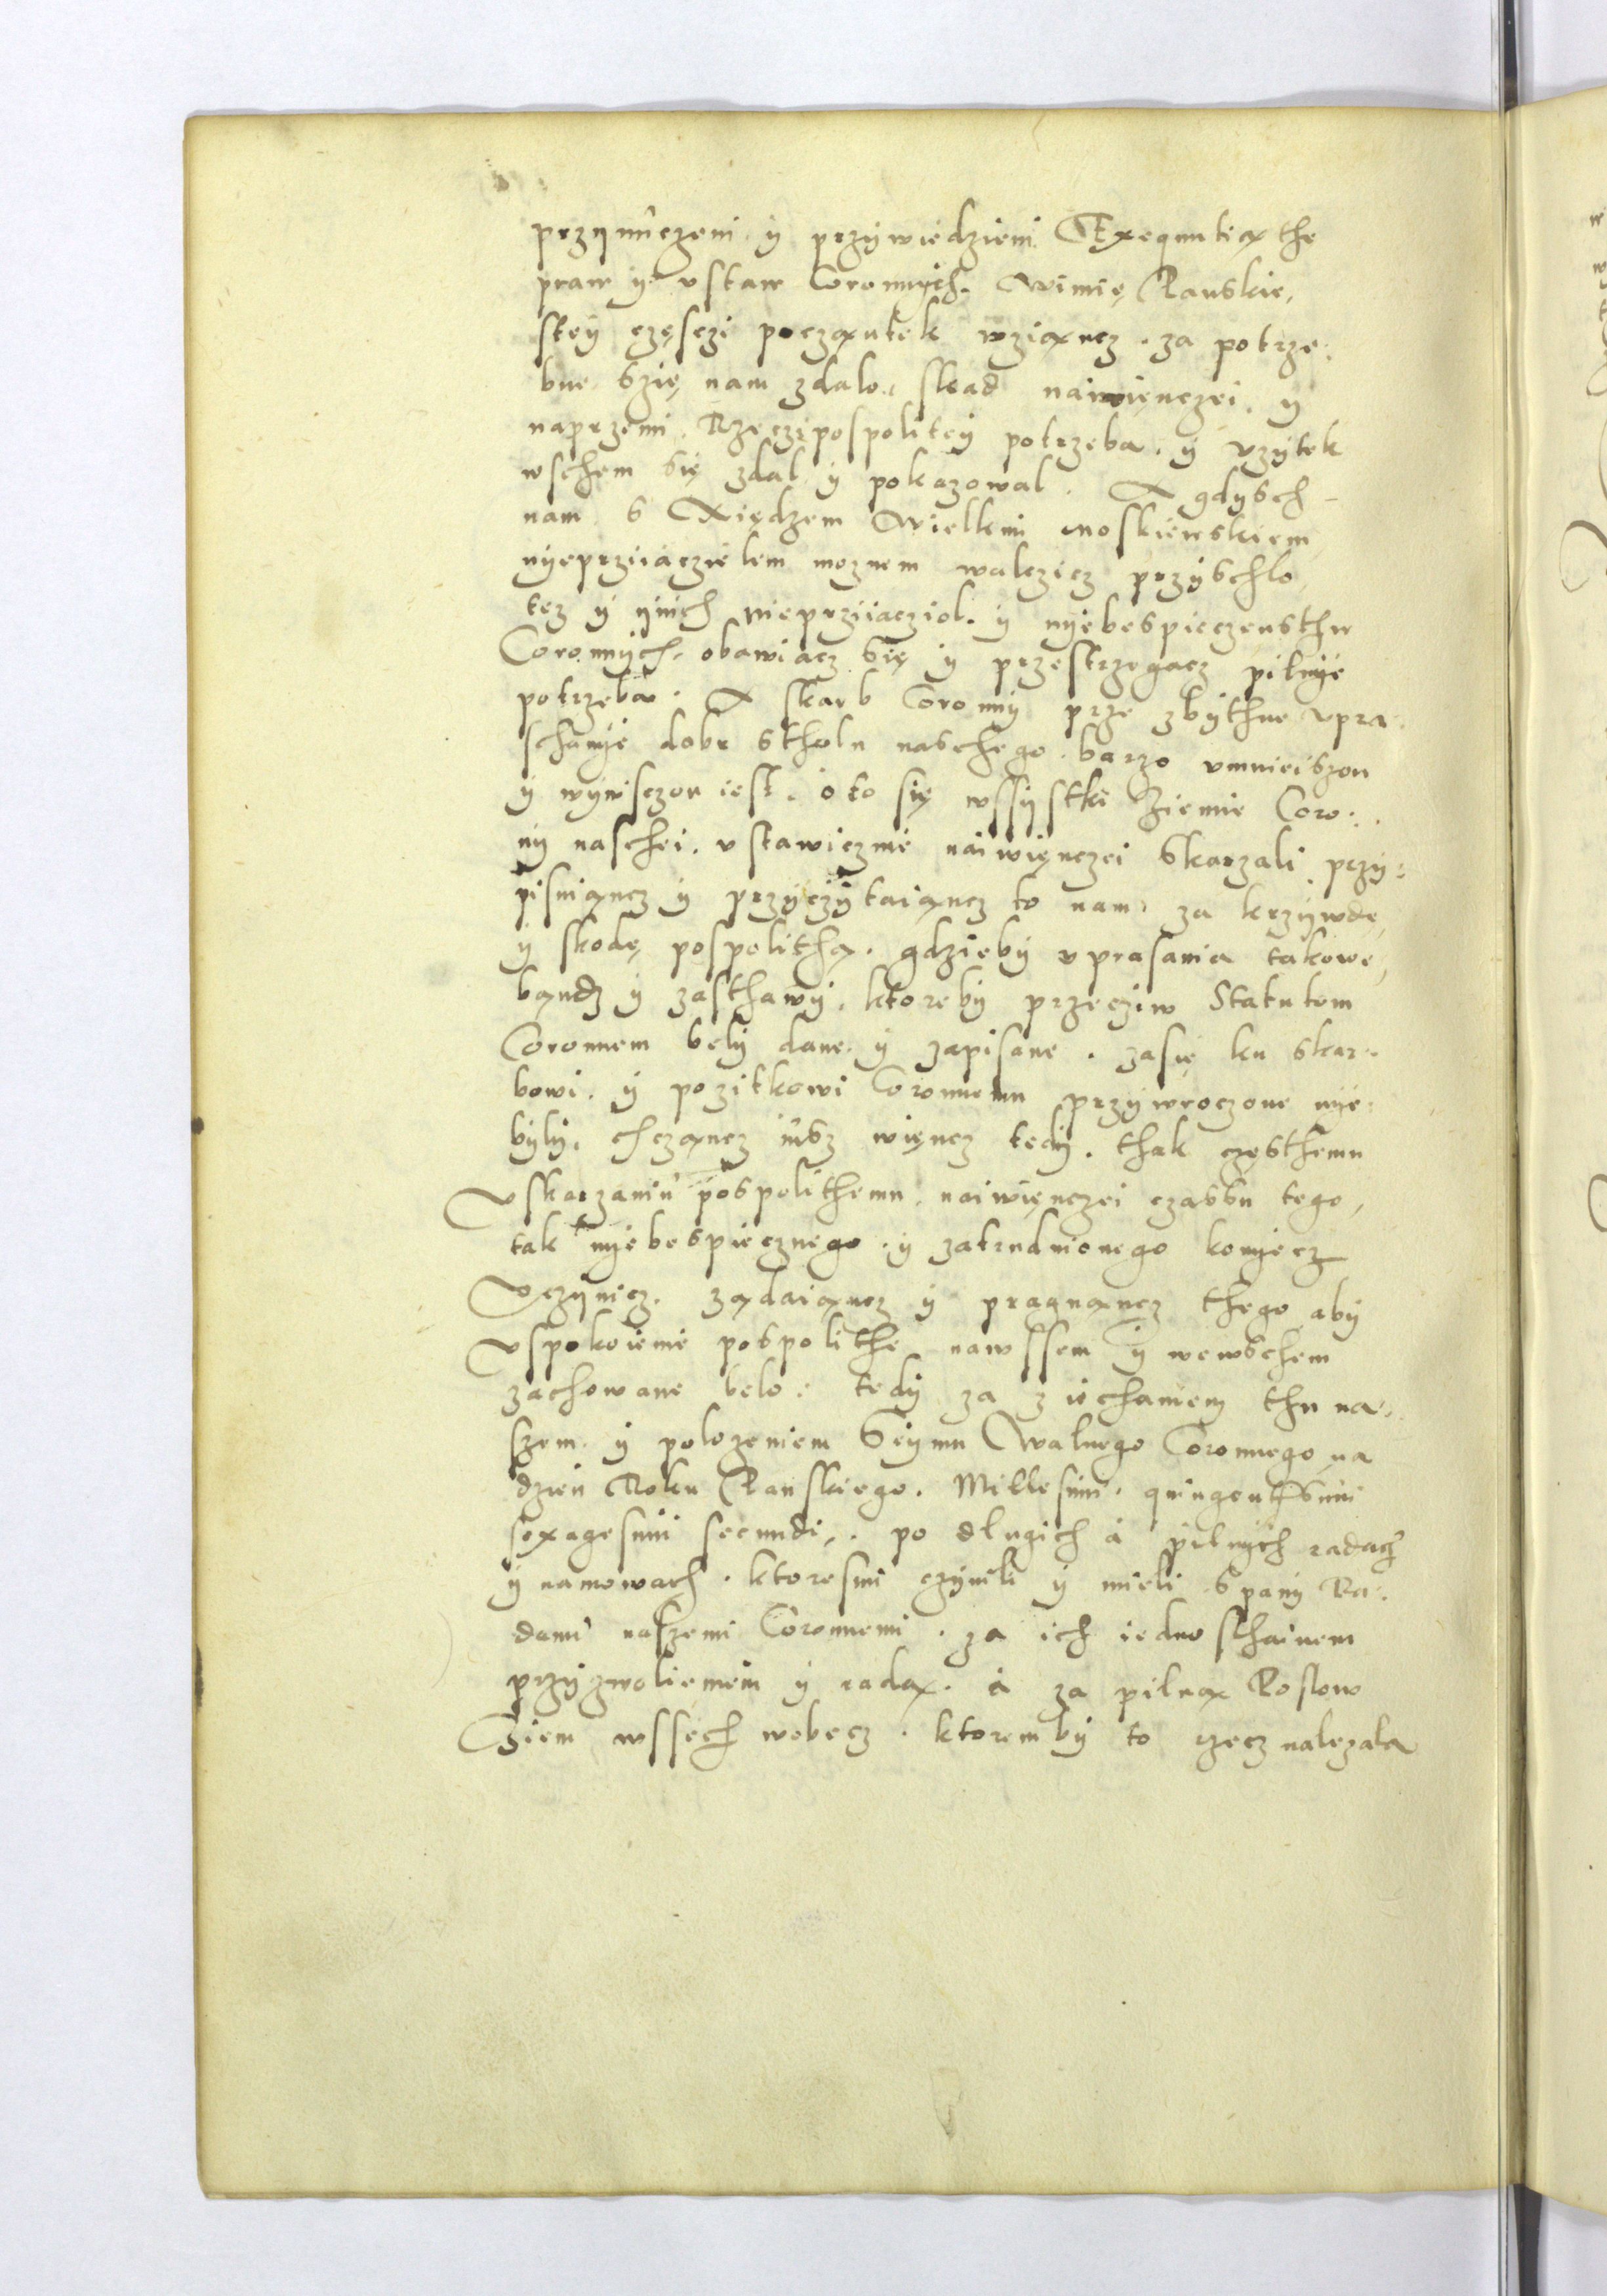 przymuczeni y przywiedzieni Exequutią the
praw y ustaw Coronnych. Wimię Panskie,
stey częsczi początek wziąncz. za potrze:
bne szię nam zdalo, skad naiwięnczei. y
naprzemi Rzeczipospolitey potrzeba. y uzytek
wschem się zdal y pokazowal. A gdysch
nam s Xiędzem Wielkim Moskiewskiem
nyeprziiaczielem moznem walczicz przyschlo
tez y ynich nieprziiacziol. y nyebespieczensthw
Coronnych. obawiacz się y przestrzegacz pilnye
potrzeba. A skarb Coronny prze zbythne upra:
schanye dobr stholu naschego. barzo umnieiszon
y wyniszczon iest. o to się wssystki Ziemie Coro:
ny naschei. ustawicznie naiwięnczei skarzali przy:
pisuiąncz y przyczytaiąncz to nam, za krzywdę,
y skodę pospolithą. gdzieby uprasania takowe,
bąndz y zasthawy. ktoreby przecziw Statutom
Coronnem bely dane. y zapisane. zasię ku skar:
bowi. y pozitkowi Coronnemu przywroczone nye
byly. chcząncz iusz więncz tedy. thak częsthemu
Uskarzaniu pospolithemu. naiwięnczei czassu tego,
tak nyebespiecznego. y zatrudnionego konyecz
Uczynicz. ządaiąncz y pragnąncz thego aby
Uspokoienie pospolithe nawssem y wewschem
zachowane belo: tedy za ziechaniem thu na:
szem. y polozeniem Seymu Walnego Coronnego na
dzien Roku Panskiego. Millesimi. quingentesimi
sexagesimi secundi,. po dlugich a pilnych radach
y namowach. ktoresmi czynili y mieli s pany Ra:
dami naszemi Coronnemi. za ich iednosthainem
przyzwoliemem y radą. a za pilną Poslow
Ziem wssech wobecz. ktoremby to rzecz nalezala